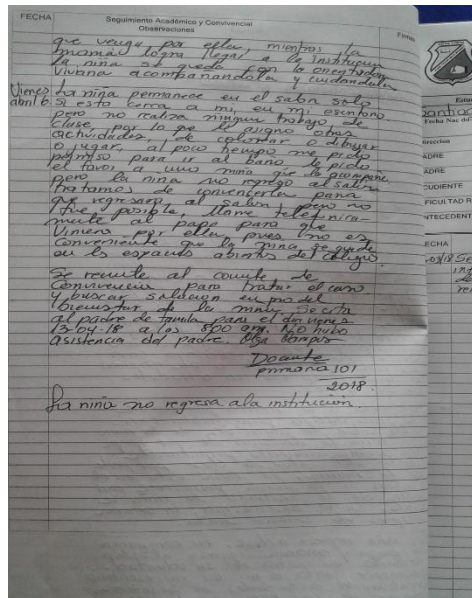 FECHA
Seguimiento Académico y Convivencial
Observaciones
Firmas
que venga por ella, mientras la
mamá logra llegar a la institucion
la niña se queda con la orientadora
Viviana acompañandola y cuidandola
Viernes La niña permanece en el salon solo
abril 6 si esto cerca a mi, en mi escritorio
pero no realiza ningun trabajo de
clase, por lo que le asigno otras
actividades de colorear o dibujar
o jugar, al poco tiempo me pide
permiso para ir al baño le pido
el favor a una niña que la acompañe
pero la niña no regreso al salon
tratamos de convencerla para
que regresara al salon, pero no
fue posible, llame telefonica-
mente al papa para que
viniera por ella, pues no es
conveniente que la niña se quede
en los espacios abiertos del colegio.
Se remite al comite de
Convivencia para tratar el caso
y buscar solucion en pro del
bienestar de la niña. Se cita
al padre de familia para el dia viernes
13-04-18 a las 8:00 am. No hubo
asistencia del padre. Olga
Docente
primaria 101
2018
La niña no regresa a la institucion.
Fecha Nac
ADRE
ADRE
CUDIENTE
FICULTAD R
NTECEDENT
ECHA